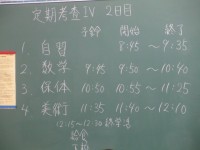 定期考査Ⅳ 2日目
予鈴 開始 終了
1. 自習 8:45〜9:35
2. 数学 9:45 9:50〜10:40
3. 保体 10:50 10:55〜11:25
4. 美術 11:35 11:40〜12:10
12:15〜12:30 終学活
給食
下校